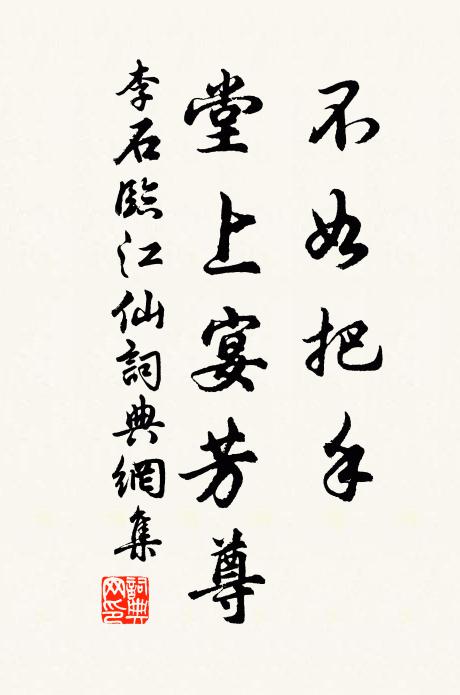 不如把手
堂上宴芳尊
李石臨江仙詞典網集
詞典网印